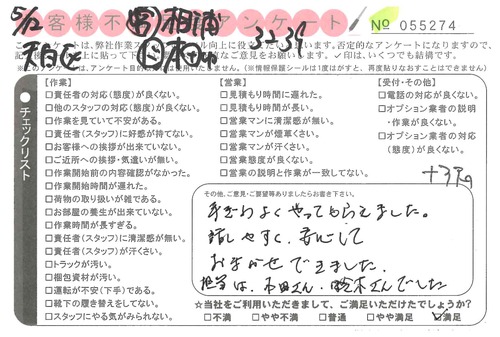 5/12
お客様不満足アンケート
№ 055274
3+39
このアンケートは、弊社作業スタッフ
否定的なアンケートになりますので、
✓印は、いくつでも結構です。
チェックリスト
【作業】
□責任者の対応(態度)が良くない。
□他のスタッフの対応(態度)が良くない。
□作業を見ていて不安がある。
□責任者(スタッフ)に好感が持てない。
□お客様への挨拶が出来ていない。
□ご近所への挨拶・気遣いが無い。
□作業開始前の内容確認がなかった。
□作業開始時間が遅れた。
□荷物の取り扱いが雑である。
□お部屋の養生が出来ていない。
□作業時間が長すぎる。
□責任者(スタッフ)に清潔感が無い。
□責任者(スタッフ)が汗くさい。
□トラックが汚い。
□梱包資材が汚い。
□運転が不安(下手)である。
□靴下の履き替えをしてない。
□スタッフにやる気がみられない。
【営業】
□見積もり時間に遅れた。
□見積もり時間が長い。
□営業マンに清潔感が無い。
□営業マンが煙草くさい。
□営業マンが汗くさい。
□営業態度が良くない。
□営業の説明と作業が一致してない。
【受付・その他】
□電話の対応が良くない。
□オプション業者の説明
・作業が良くない。
□オプション業者の対応
(態度)が良くない。
その他、ご意見・ご要望等ありましたらお書き下さい。
手ぎわよくやってもらえました。
話しやすく、安心して
おまかせできました。
担当は、本田さん、鈴木さんでした
☆当社をご利用いただきまして、ご満足いただけたでしょうか?
□不満 □やや不満 □普通 □やや満足 ☑満足